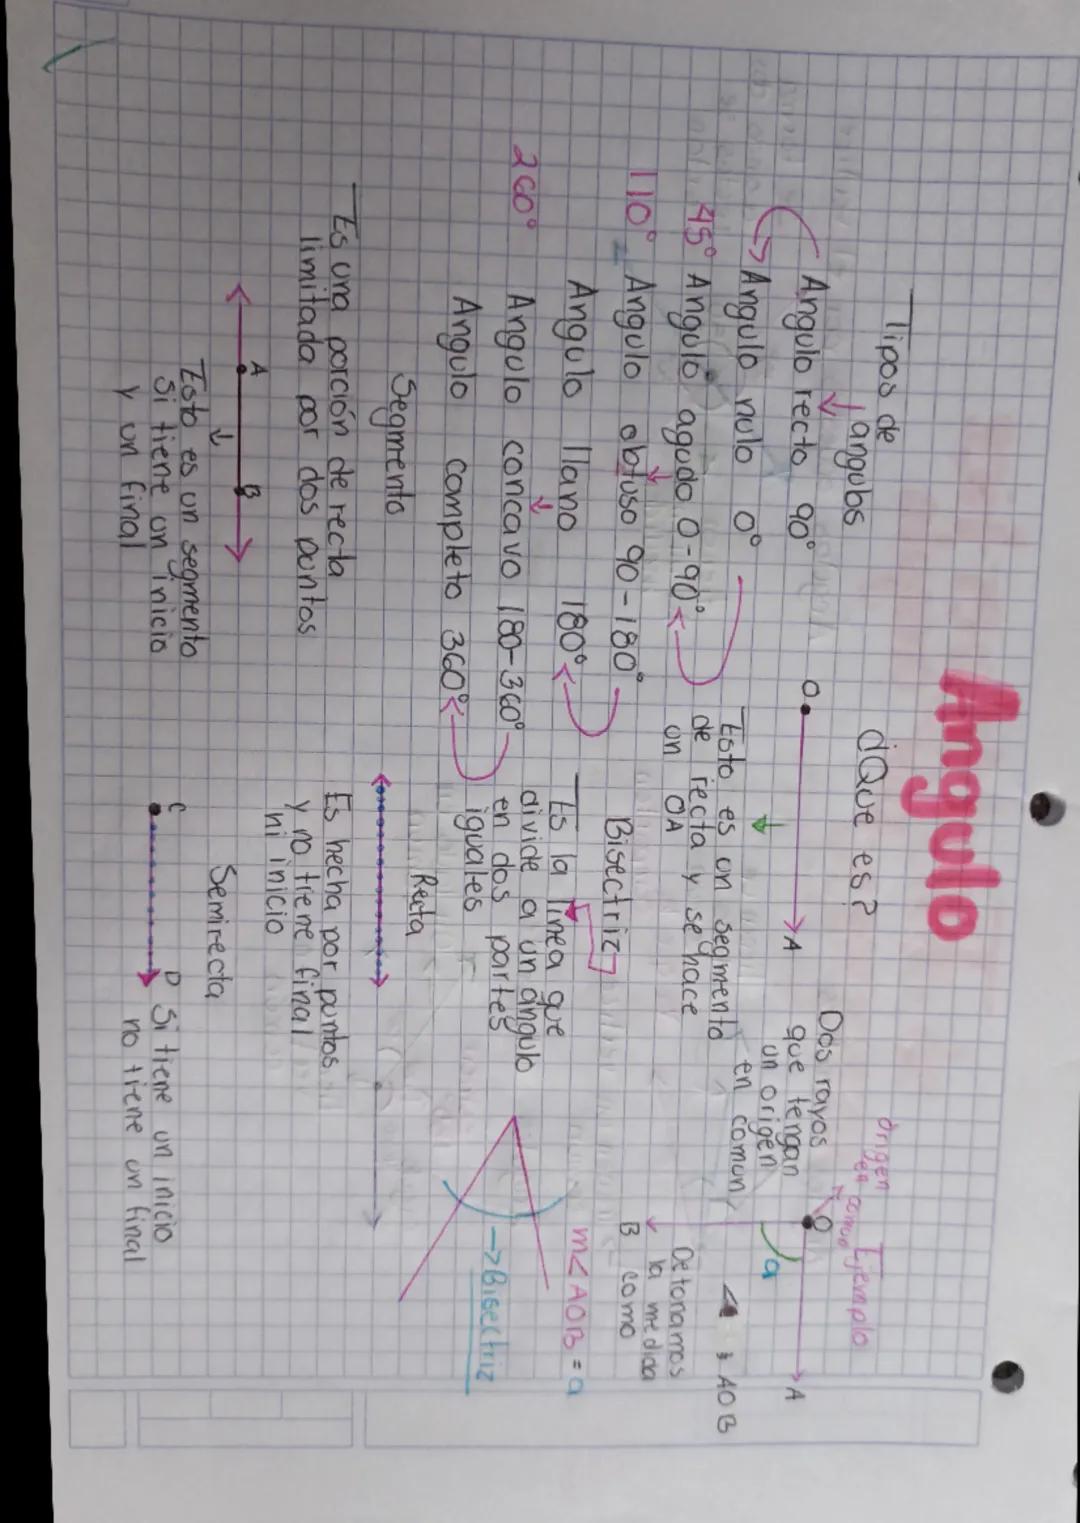 Angulo
Tipos de
angulos
Angulo recto 90°
Angulo nulo 0°
45° Angulo agudo 0-90°
110° Angulo obtuso 90-180°
Angulo llano 180°
260° Angulo concavo 180-360°
Angulo completo 360°
Segmento
Es una porción de recta
limitada por dos puntos
A B
Esto es un segmento
Si tiene un inicio
y un final
¿Que es?
O A
Esto es un segmento
de recta y se hace
un OA
Bisectriz
Es la linea que
divide a un ángulo
en dos partes
iguales
Recta
Es hecha por puntos
y no tiene final
ni inicio
Semirecta
C D
Si tiene un inicio
no tiene un final
Dos rayos
que tengan
un origen
en comun
origen
en comun
Ejemplo
O A
a
B
∢ AOB
Detonamos
la medida
como
m<AOB = a
->Bisectriz